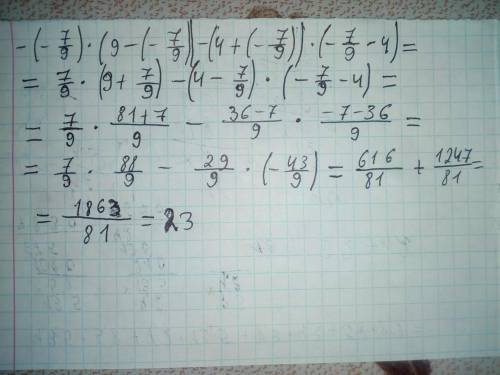 -(-7/9)·(9-(-7/9))-(4+(-7/9))·(-7/9-4)=
= 7/9·(9+7/9)-(4-7/9)·(-7/9-4)=
= 7/9·(81+7)/9 - (36-7)/9·(-7-36)/9=
= 7/9·88/9 - 29/9·(-43/9)=616/81+1247/81=
= 1863/81=23